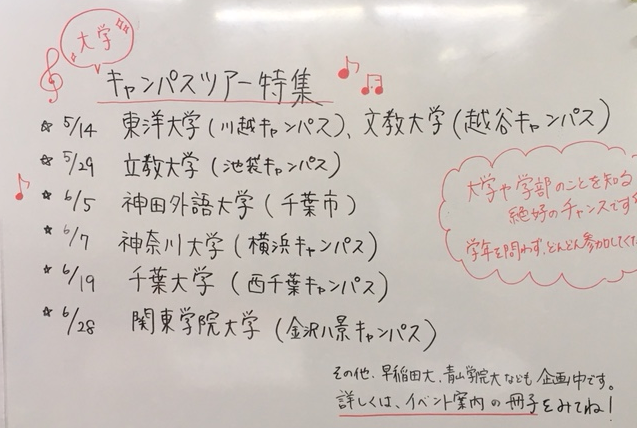 大学
キャンパスツアー特集
☆ 5/14 東洋大学(川越キャンパス)、文教大学(越谷キャンパス)
☆ 5/29 立教大学(池袋キャンパス)
☆ 6/5 神田外語大学(千葉市)
☆ 6/7 神奈川大学(横浜キャンパス)
☆ 6/19 千葉大学(西千葉キャンパス)
☆ 6/28 関東学院大学(金沢八景キャンパス)
大学や学部のことを知る
絶好のチャンスです
学年を問わず、どんどん参加してく
その他、早稲田大、青山学院大なども企画中です。
詳しくは、イベント案内の冊子をみてね!